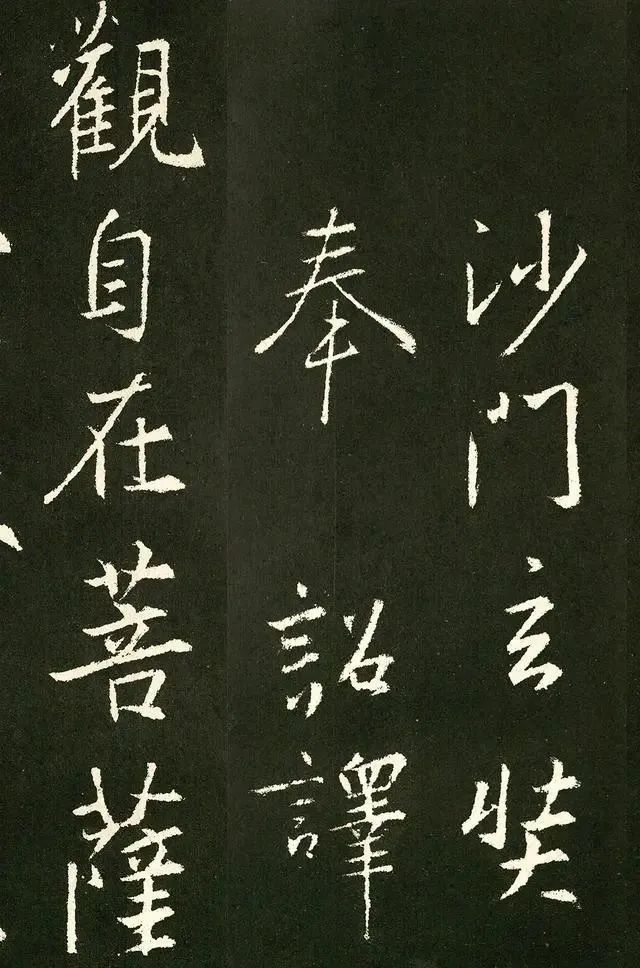 沙門玄奘
奉詔譯
觀自在菩薩